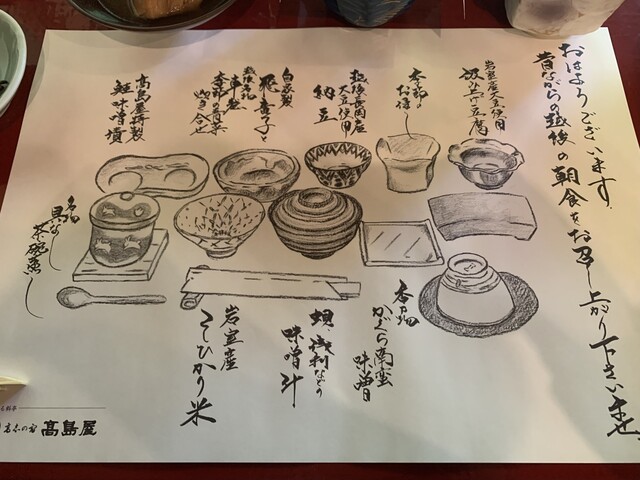 おはようございます。
昔ながらの越後の朝食をお召し上がり下さいませ
岩室産大豆使用
汲み上げ豆腐
季節の
お浸し
越後長岡産
大豆使用
納豆
自家製
飛竜子と
越後名物
車麩
季節の青菜
炊き合せ
高島屋特製
鮭味噌漬
名物
具なし
茶碗蒸し
岩室産
こしひかり米
蜆、浅利などの
味噌汁
かぐら南蛮
味噌
高島屋